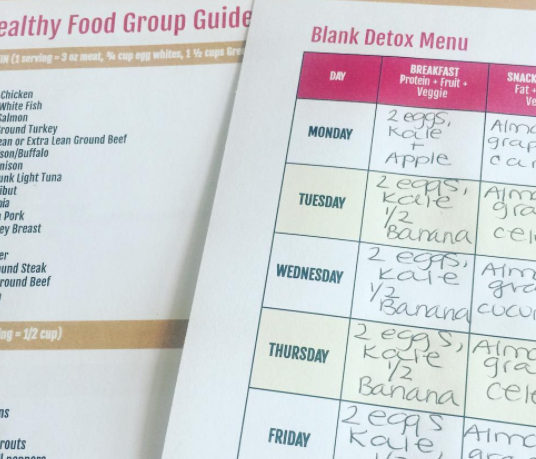 ealthy Food Group Guide
IN (1 serving = 3 oz meat, ¾ cup egg whites, 1 ½ cups Gre
Chicken
White Fish
Salmon
round Turkey
ean or Extra Lean Ground Beef
son/Buffalo
nison
unk Light Tuna
ibut
pia
Pork
ey Breast
er
und Steak
round Beef
ing = 1/2 cup)
ns
routs
Blank Detox Menu
DAY
BREAKFAST
Protein + Fruit +
Veggie
SNACK
Fat +
Ve
MONDAY
2 eggs,
Kale
+
Apple
Almo
grap
car
TUESDAY
2 eggs,
Kale
1/2
Banana
Almo
gra
cele
WEDNESDAY
2 eggs,
Kale
1/2
Banana
Almo
gra
cucu
THURSDAY
2 eggs,
Kale
1/2
Banana
Almo
gra
cele
FRIDAY
2 eggs
Kale,
Almo